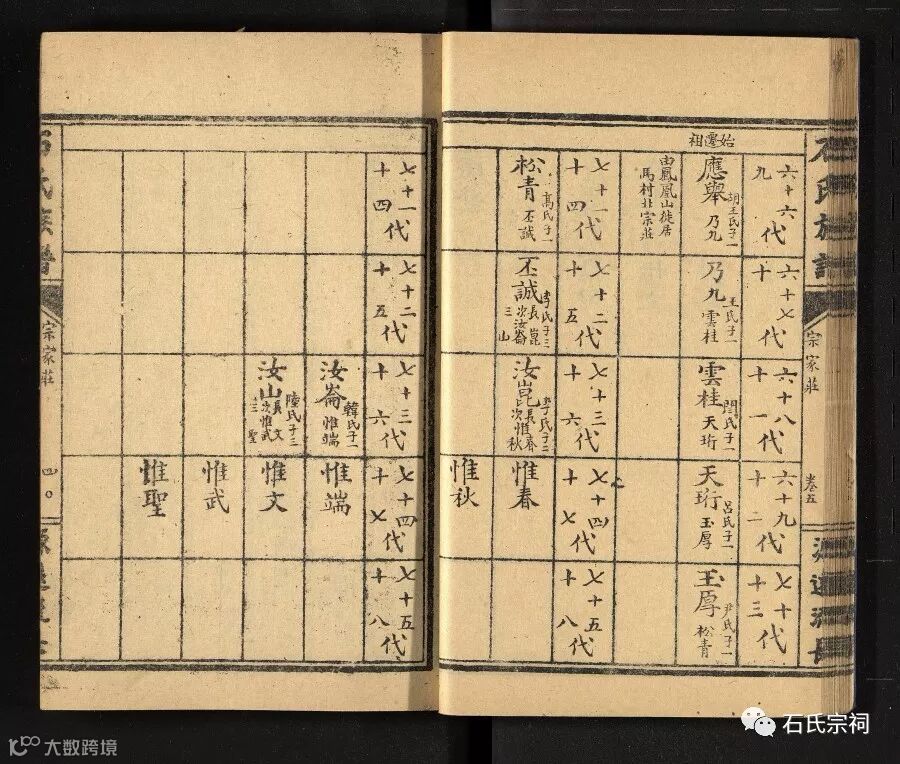 石氏族譜
宗家莊
卷五
源遠流長
六十六代
九
六十七代
十
六十八代
十一
六十九代
十二
七十代
十三
始遷祖
應舉
胡王氏子一
乃九
乃九
王氏子一
雲桂
雲桂
閆氏子一
天珩
天珩
呂氏子一
玉厚
玉厚
尹氏子一
松青
由鳳凰山徙居
馬村北宗莊
七十一代
十四
七十二代
十五
七十三代
十六
七十四代
十七
七十五代
十八
松青
高氏子一
丕誠
丕誠
李氏子三
長 崑
次汝崙
三 山
汝崑
李氏子二
長惟春
次惟秋
惟春
惟秋
七十一代
十四
七十二代
十五
七十三代
十六
七十四代
十七
七十五代
十八
汝崙
韓氏子一
惟端
惟端
汝山
陸氏子三
長 文
次惟武
三 聖
惟文
惟武
惟聖
石氏族譜
宗家莊
四〇
源遠流長
石氏宗祠
大数跨境